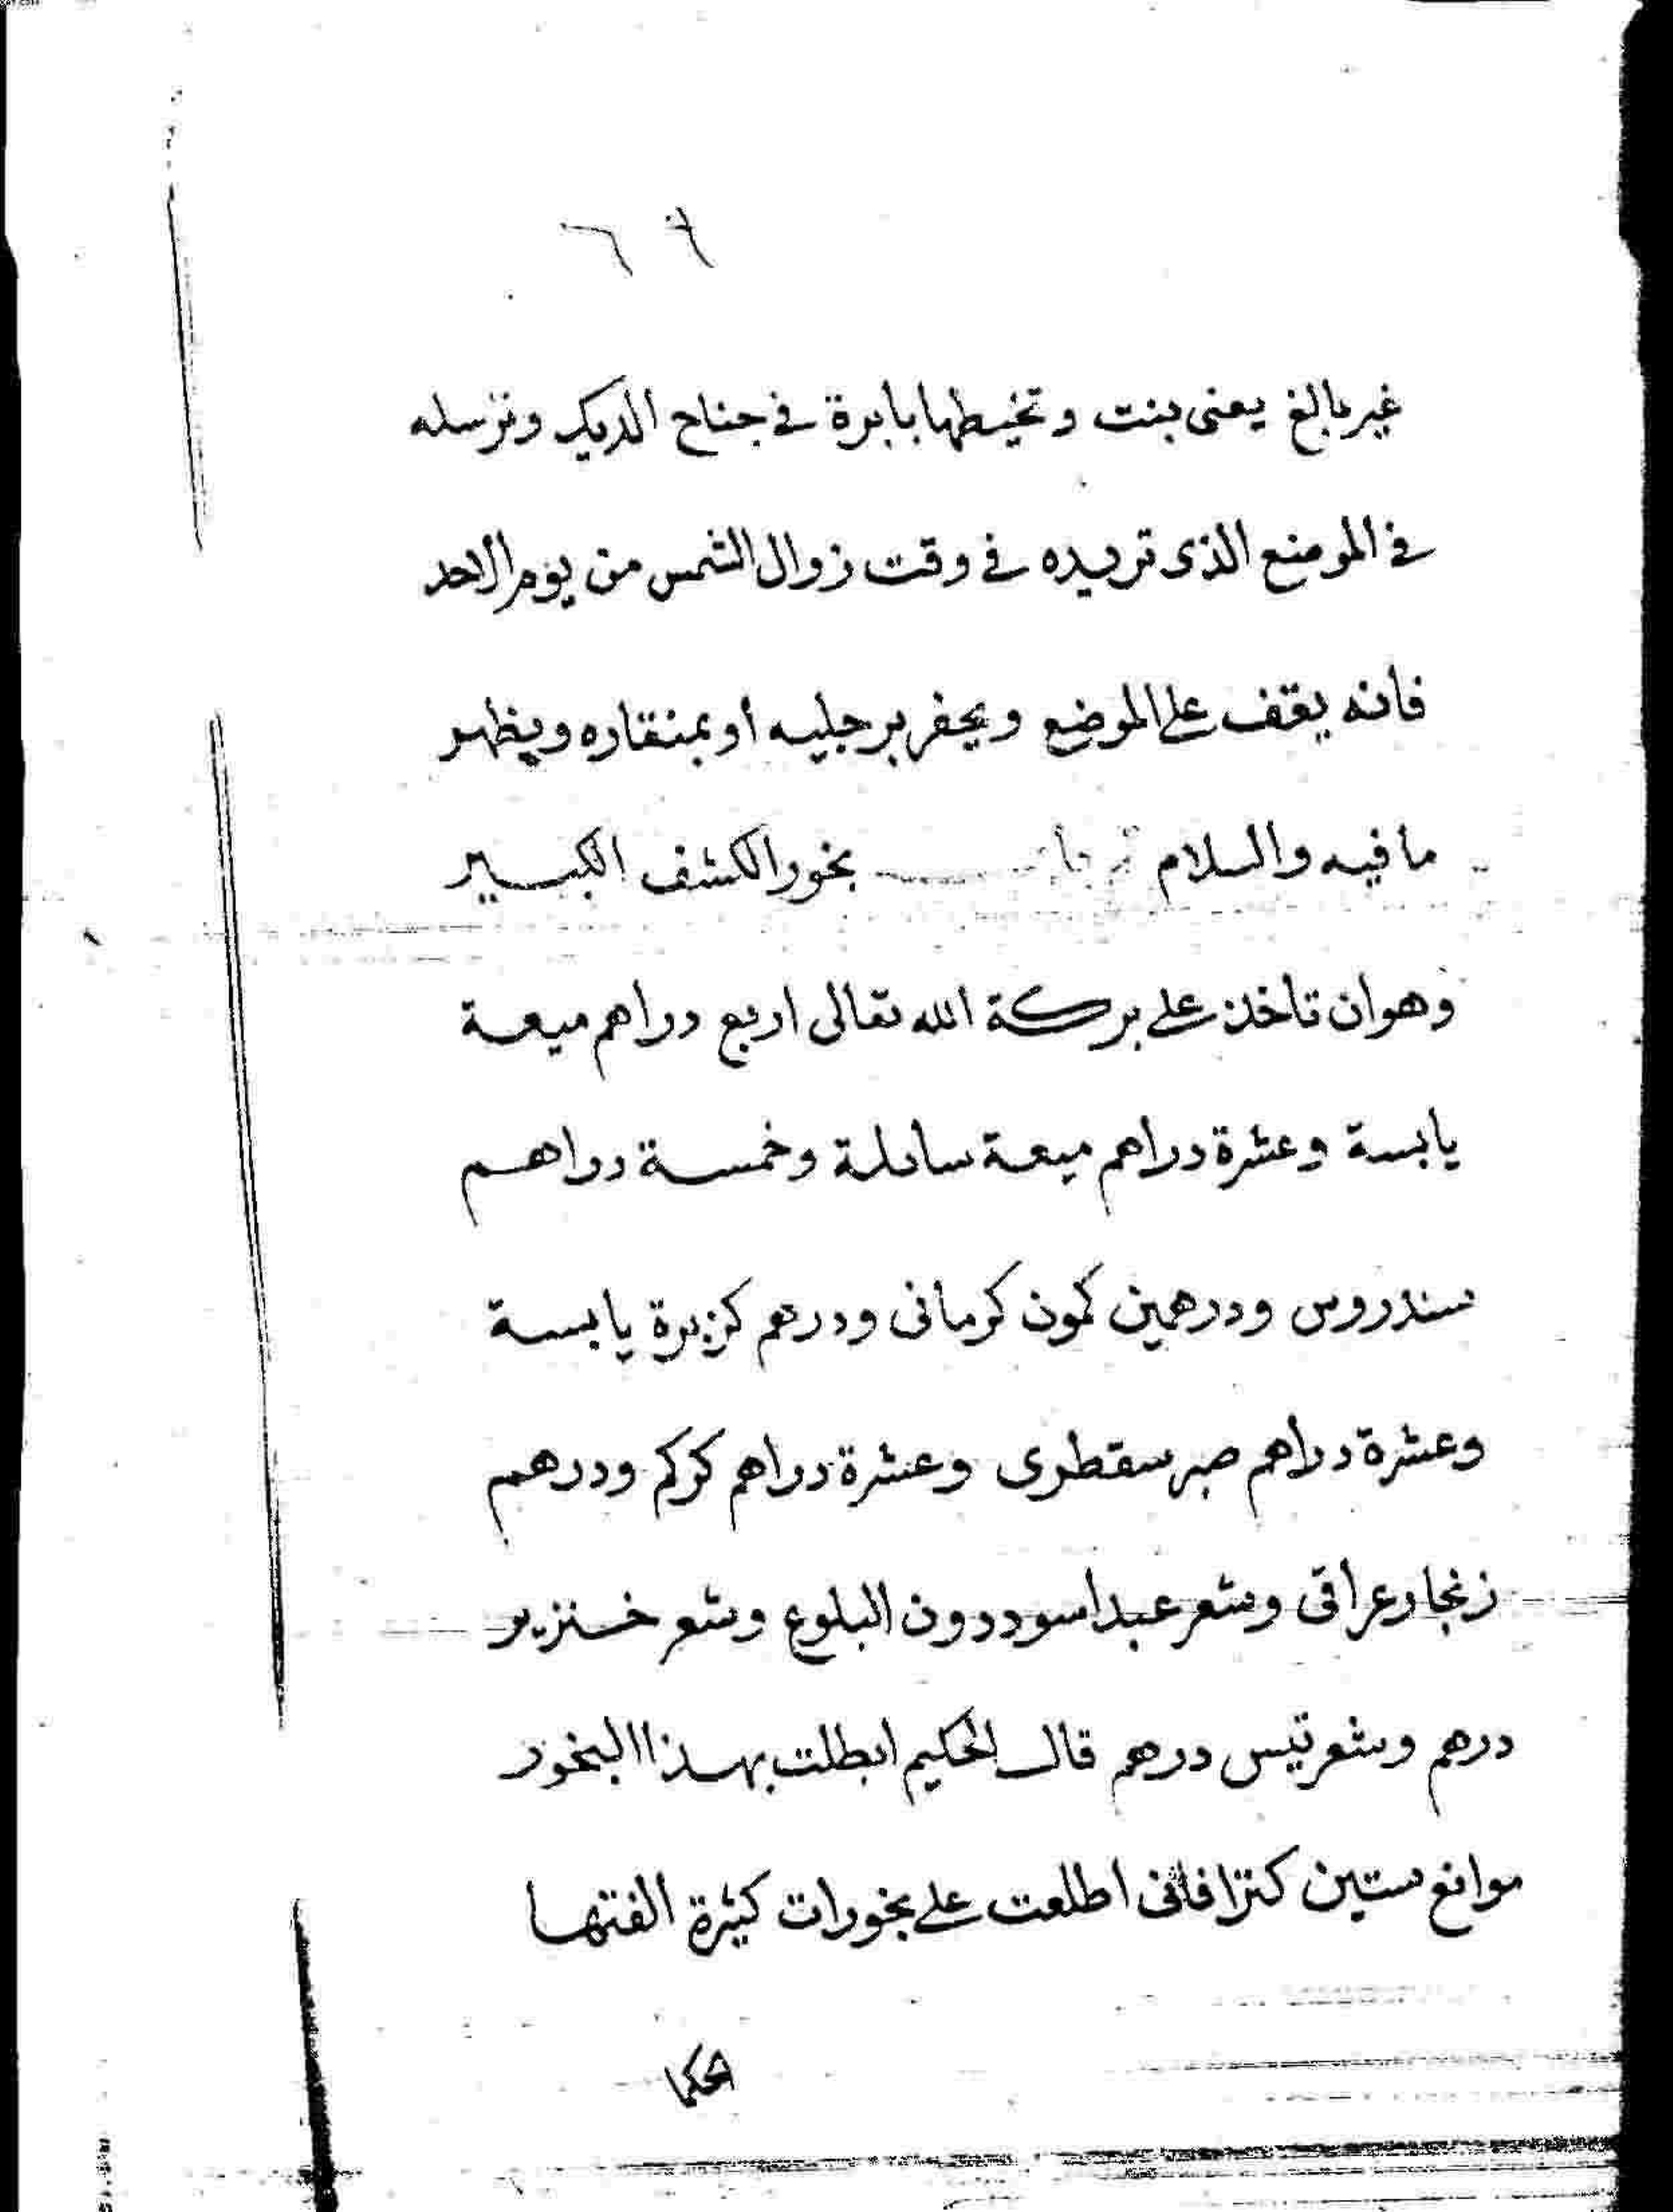 غير بالغ يعنى بنت وتخيطها بابرة فى جناح الديك وترسله
فى الموضع الذى تريده فى وقت زوال الشمس من يوم الاحد
فانه يقف على الموضع ويحفر برجليه أو بمنقاره ويظهر
ما فيه والسلام بخور الكشف الكبير
وهو ان تاخذ على بركة الله تعالى اربع دراهم ميعة
يابسة وعشرة دراهم ميعة سائلة وخمسة دراهم
سندروس ودرهمين كمون كرمانى ودرهم كزبرة يابسة
وعشرة دراهم صبر سقطرى وعشرة دراهم كركم ودرهم
زنجار عراقى وشعر عبد اسود دون البلوع وشعر خنزير
درهم وشعر تيس درهم قال الحكيم ابطلت بهذا البخور
موانع ستين كنزا فانى اطلعت على بخورات كثيرة الفتها
الحكما